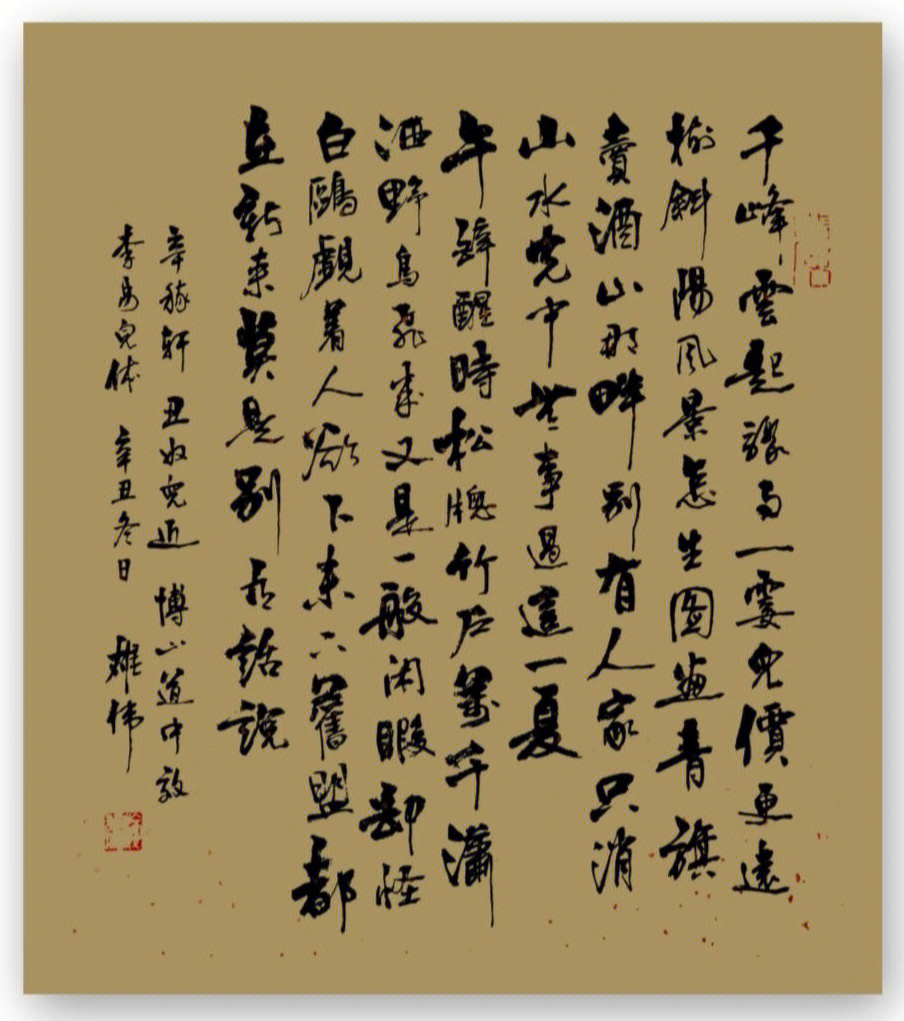 千峰雲起驟雨一霎兒價更遠
樹斜陽風景怎生圖畫青旗
賣酒山那畔別有人家只消
山水光中無事過這一夏
午醉醒時松窗竹戶萬千瀟
洒野鳥飛來又是一般闲暇卻怪
白鷗覷着人欲下未下舊盟都
在新來莫是別有話說
辛稼軒 丑奴兒近 博山道中效
李易安体 辛丑冬日 雄伟